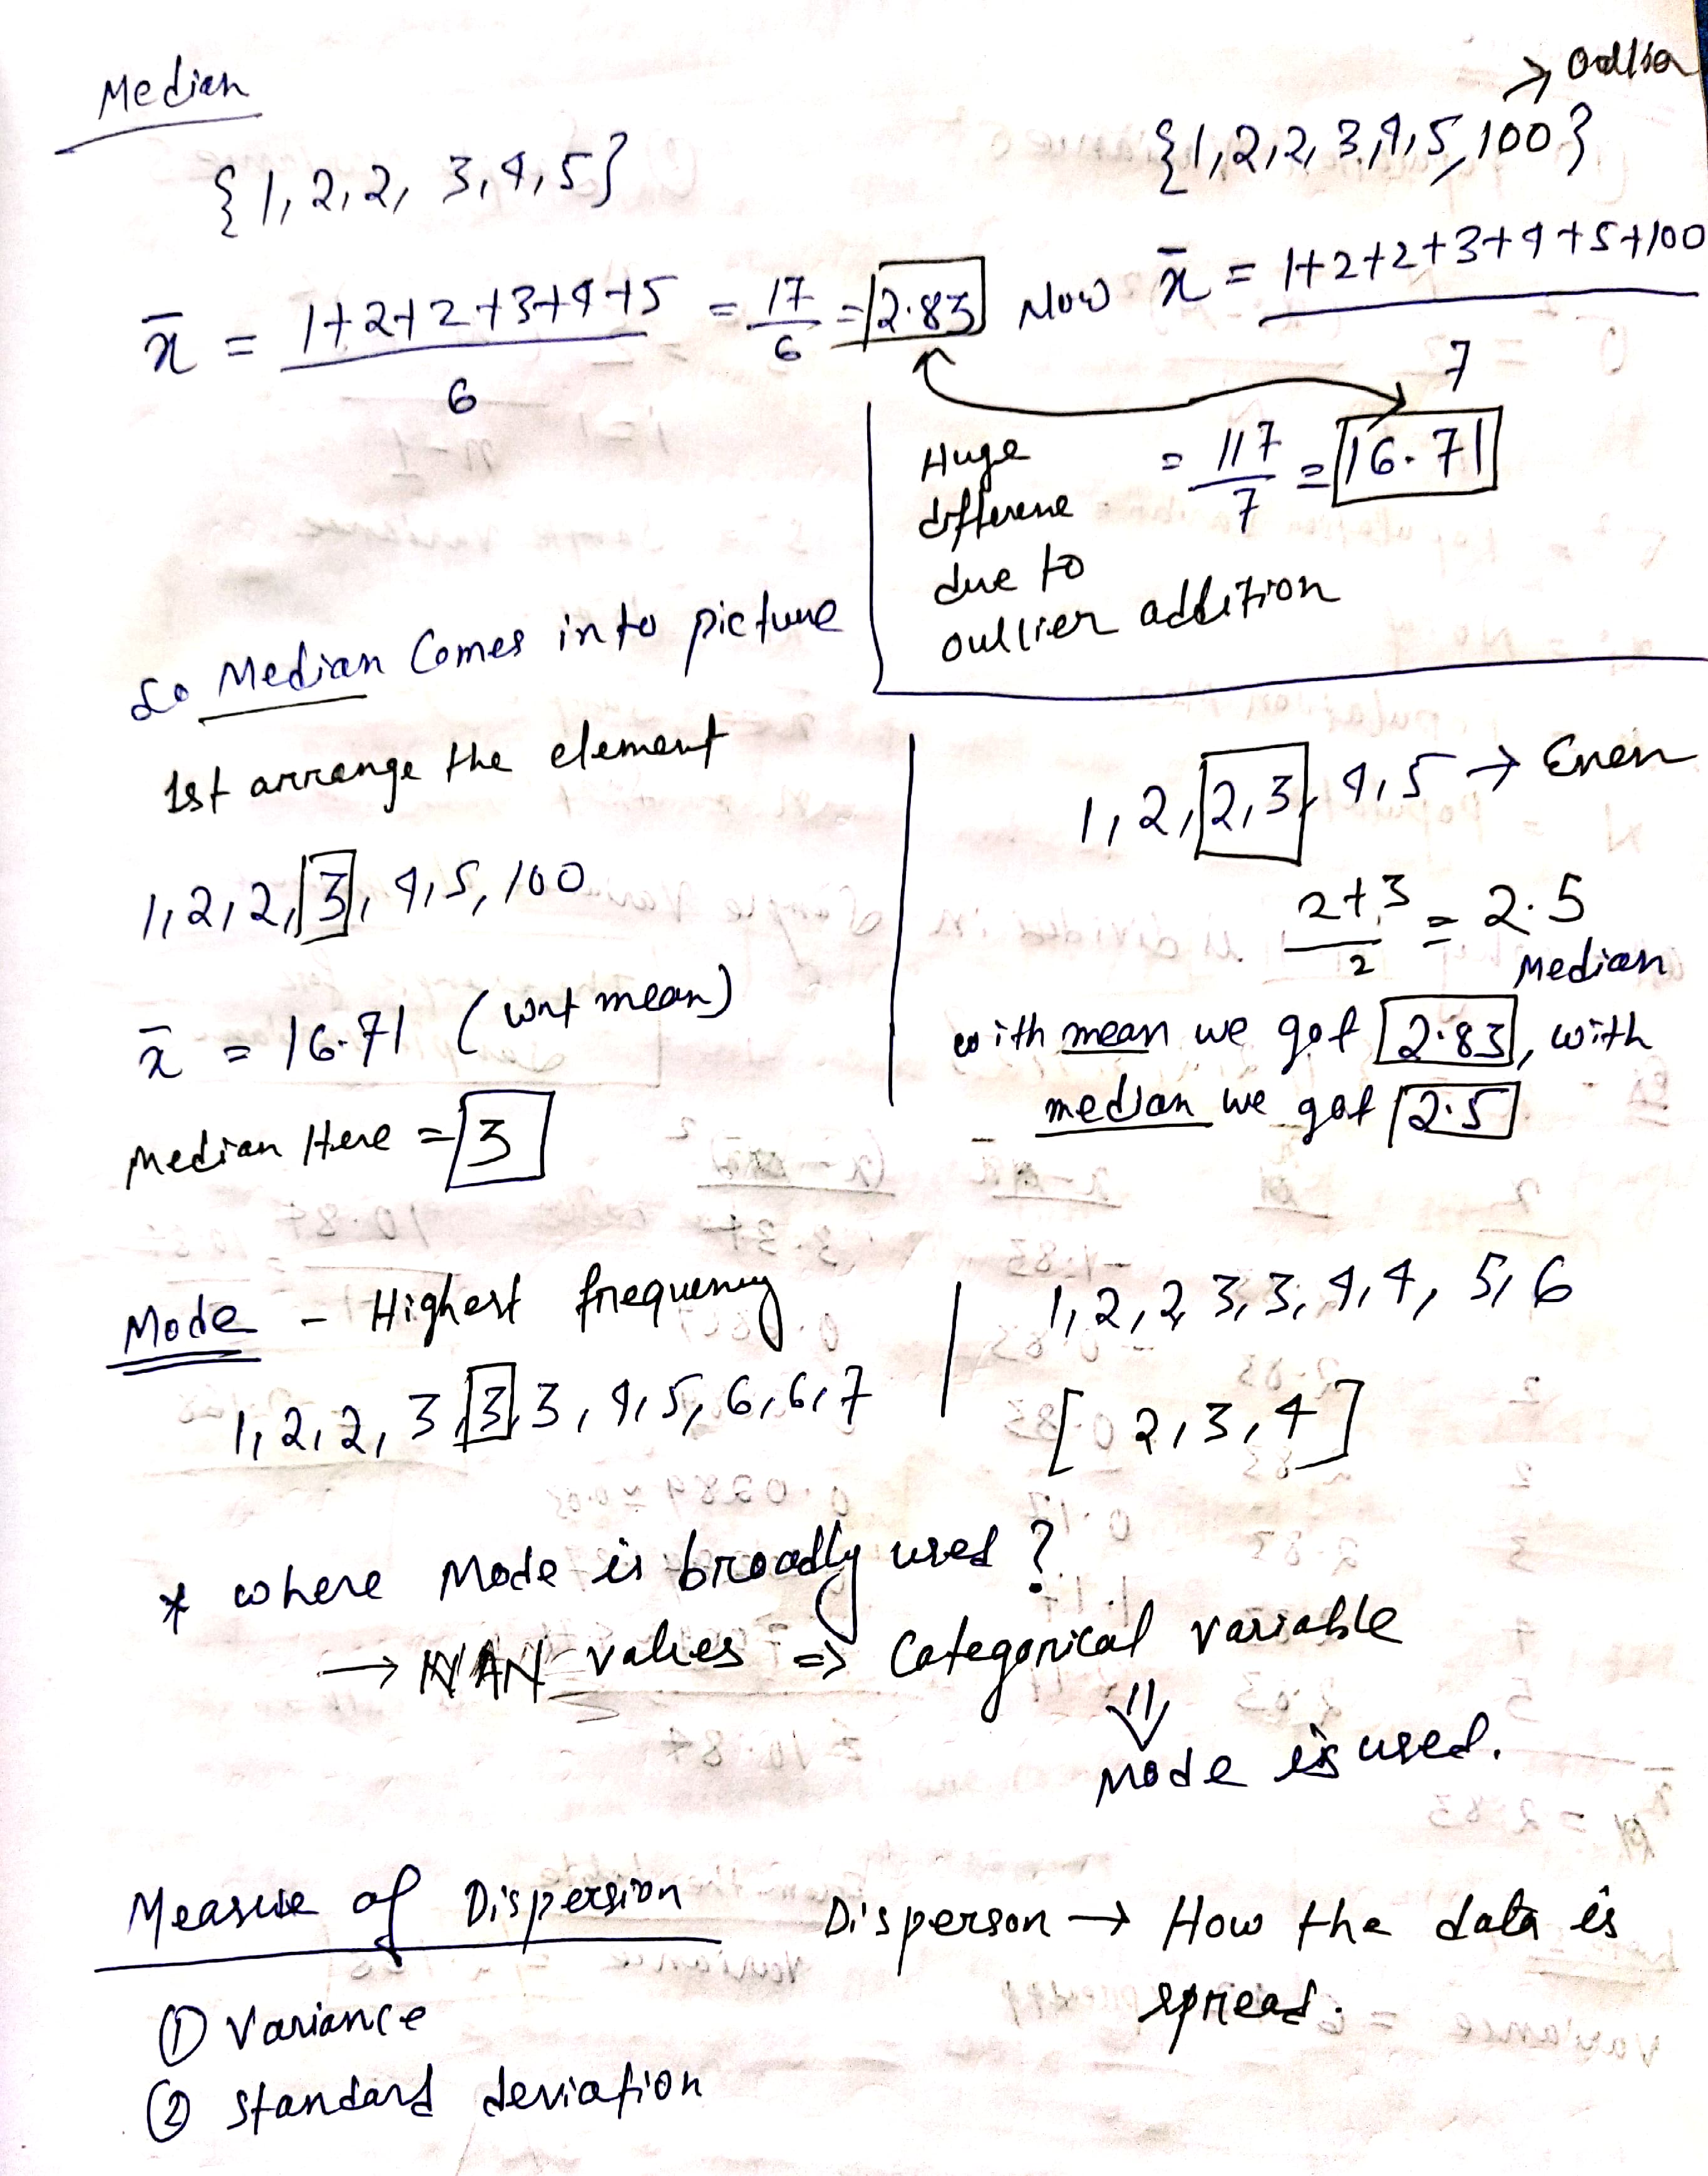 Median
{1,2,2, 3,4,5}
x̄ = 1+2+2+3+4+5 / 6 = 17/6 = 2.83
→ Outlier
{1,2,2,3,4,5,100}
Now x̄ = 1+2+2+3+4+5+100 / 7
= 117/7 = 16.71
Huge
difference
due to
outlier addition
So Median Comes into picture
1st arrange the element
1,2,2,3,4,5,100
x̄ = 16.71 (wrt mean)
Median Here = 3
1,2,2,3,4,5 → Even
2+3 / 2 = 2.5
Median
with mean we got 2.83, with
median we got 2.5
Mode - Highest frequency
1,2,2,3,3,3,4,5,6,6,7
1,2,2,3,3,4,4,5,6
[2,3,4]
* where Mode is broadly used?
→ NAN values ⇒ Categorical variable
⇓
Mode is used.
Measure of Dispersion
Disperson → How the data is
spread.
① Variance
② Standard deviation